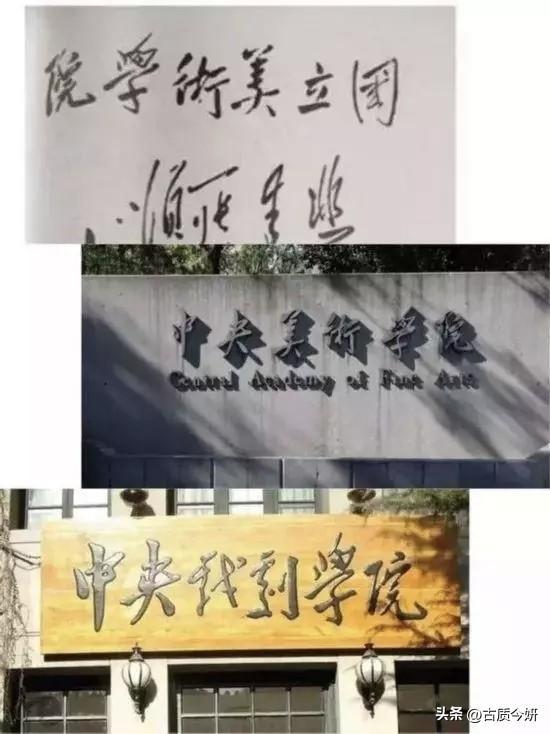 国立美術學院
中央美術学院
Central Academy of Fine Arts
中央戏剧学院
头条 @古质今妍